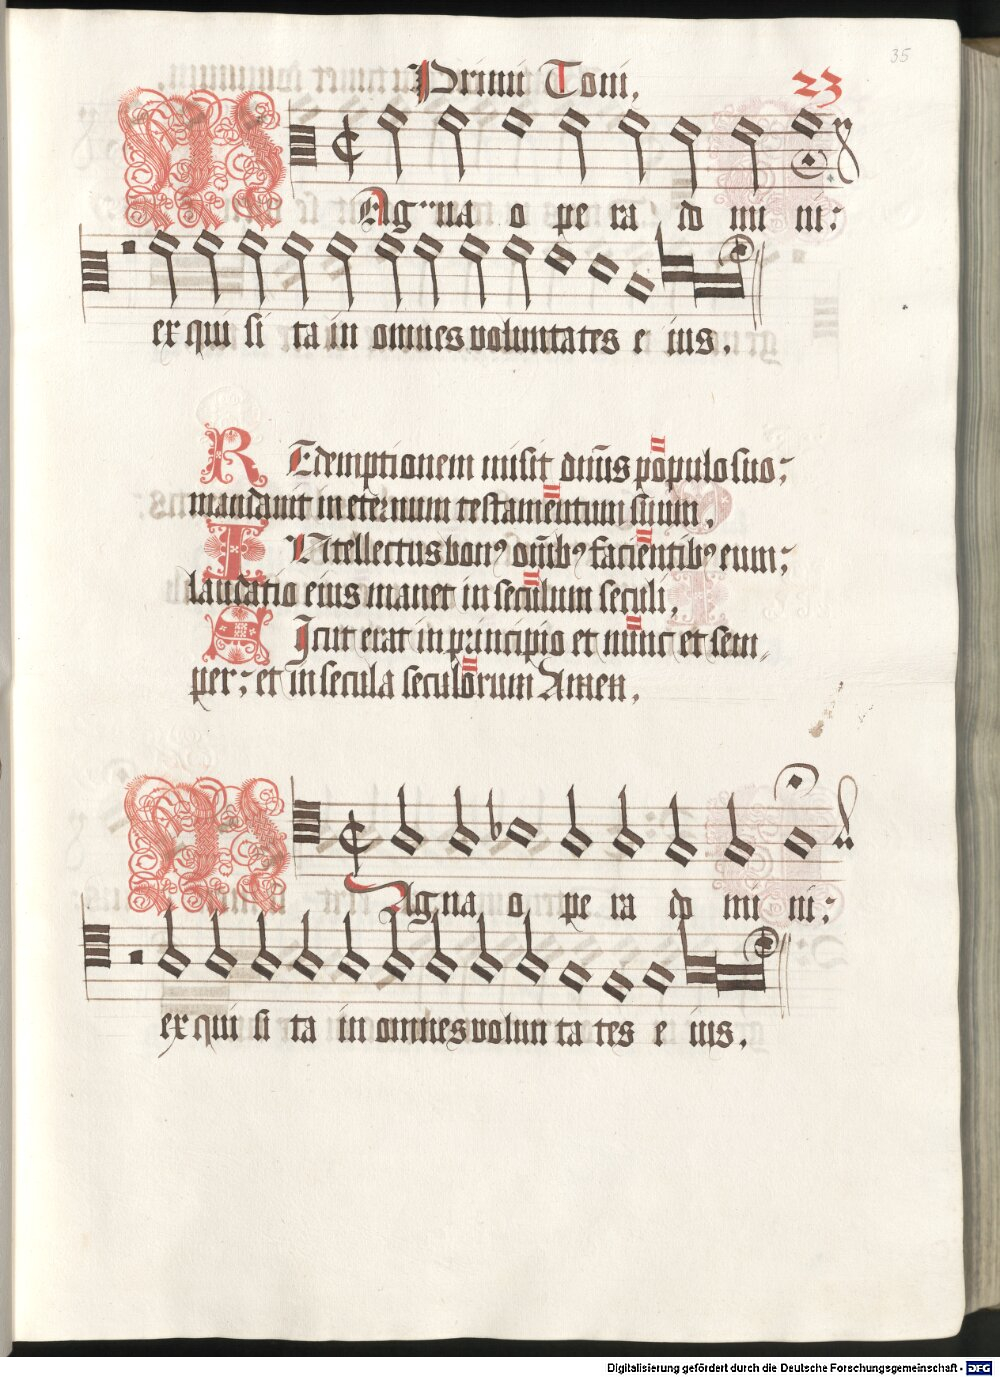 35
Primi Toni, 23
MAgna o pe ra do mi ni:
ex qui si ta in omnes voluntates e ius.
REdemptionem misit dn̄s populo suo:
mandavit in eternum testamentum suum.
INtellectus bonꝰ om̄ibꝰ facientibꝰ eum:
laudatio eius manet in seculum seculi.
SIcut erat in principio et nunc et sem
per: et in secula seculorum Amen.
MAgna o pe ra do mi ni:
ex qui si ta in omnes volun ta tes e ius.
Digitalisierung gefördert durch die Deutsche Forschungsgemeinschaft - DFG